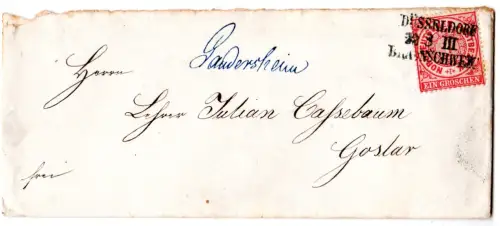 DÜSSELDORF
23 3 III
BRAUNSCHWEIG
NORDD
EIN GROSCHEN
Gandersheim
Herrn
Lehrer Julian Cassebaum
Goslar
frei